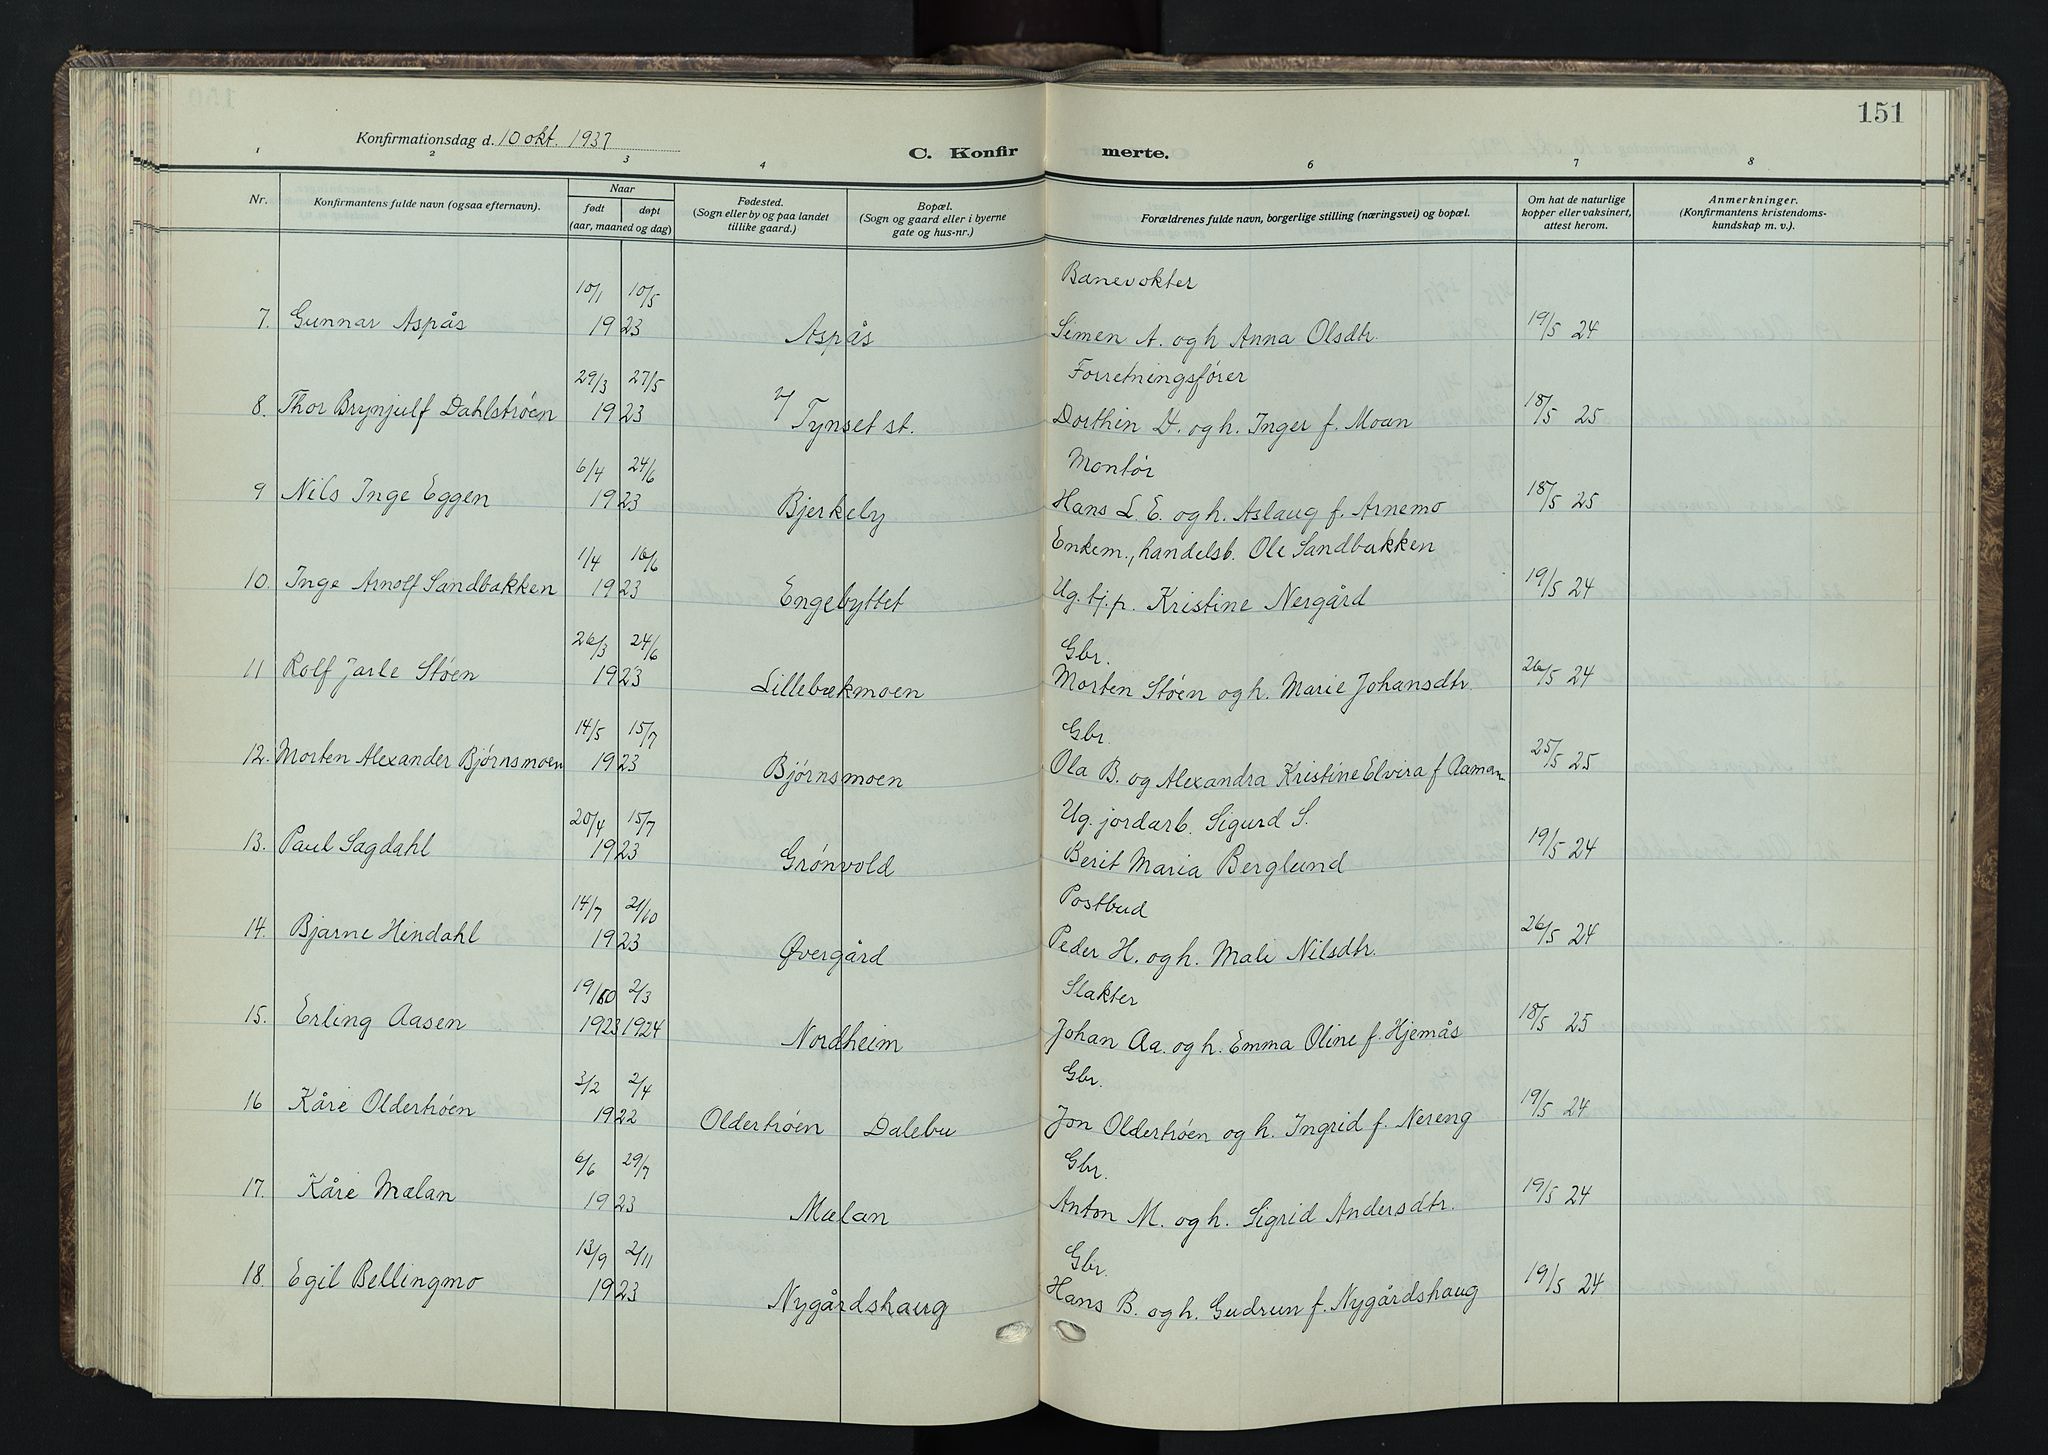 151
Konfirmationsdag d. 10 okt. 1937
C. Konfir merte.
1 2 3 4 6 7 8
Nr. Konfirmantens fulde navn (ogsaa efternavn). Naar født døpt (aar, maaned og dag) Fødested. (Sogn eller by og paa landet tillike gaard.) Bopæl. (Sogn og gaard eller i byerne gate og hus-nr.) Forældrenes fulde navn, borgerlige stilling (næringsvei) og bopæl. Om hat de naturlige kopper eller vaksinert, attest herom. Anmerkninger. (Konfirmantens kristendoms-kundskap m. v.).
10/1 10/5 Banevokter
7. Gunnar Aspås 1923 Aspås Simen A. og h. Anna Olsdtr. 19/5 24
29/3 27/5 Forretningsfører
8. Thor Brynjulf Dahlstrøen 1923 Tynset st. Dorthin D. og h. Inger f. Moan 18/5 25
6/4 24/6 Montør
9 Nils Inge Eggen 1923 Bjerkeby Hans L. E. og h. Aslaug f. Arnemo 18/5 25
1/4 16/6 Enkem., handelsb. Ole Sandbakken
10. Inge Arnolf Sandbakken 1923 Engebyttet Ug. tj.p. Kristine Nergård 19/5 24
26/3 24/6 Gbr.
11 Rolf Jarle Støen 1923 Lillebækmoen Morten Støen og h. Marie Johansdtr. 26/5 24
14/5 15/7 Gbr.
12. Morten Alexander Bjørnsmoen 1923 Bjørnsmoen Ola B. og Alexandra Kristine Elvira f Aaman 25/5 25
20/4 15/7 Ug. jordarb. Sigurd S.
13. Paul Sagdahl 1923 Grønvold Berit Maria Berglund 19/5 24
14/7 21/10 Postbud
14. Bjarne Hendahl 1923 Øvergård Peder H. og h. Mali Nilsdtr. 26/5 24
19/10 2/3 Slakter
15. Erling Aasen 1923 1924 Nordheim Johan Aa. og h. Emma Oline f. Hjemås 18/5 25
3/2 2/4 Gbr.
16 Kåre Oldertrøen 1922 Oldertrøen Dalebu Jon Oldertrøen og h. Ingrid f. Nereng 19/5 24
6/6 29/7 Gbr.
17. Kåre Mælan 1923 Mælan Anton M. og h. Sigrid Andersdtr. 19/5 24
13/9 2/11 Gbr.
18. Egil Bellingmo 1923 Nygårdshaug Hans B. og h. Gudrun f. Nygårdshaug 19/5 24